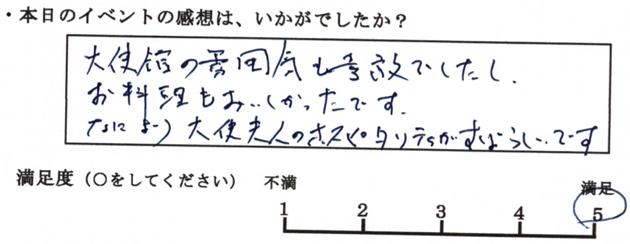 ・本日のイベントの感想は、いかがでしたか？
大使館の雰囲気も素敵でしたし、
お料理もおいしかったです。
なにより大使夫人のホスピタリティがすばらしいです
満足度（○をしてください） 不満 満足
1 2 3 4 5